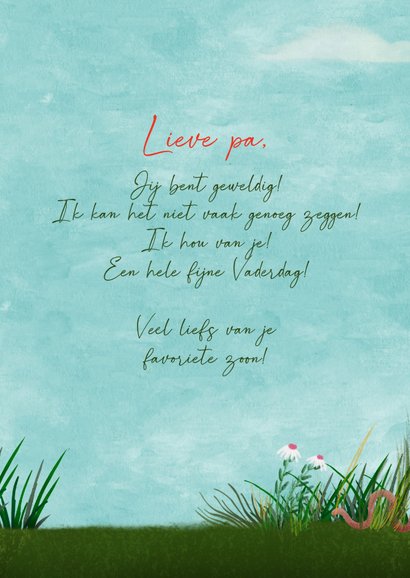 Lieve pa,
Jij bent geweldig!
Ik kan het niet vaak genoeg zeggen!
Ik hou van je!
Een hele fijne Vaderdag!
Veel liefs van je
favoriete zoon!